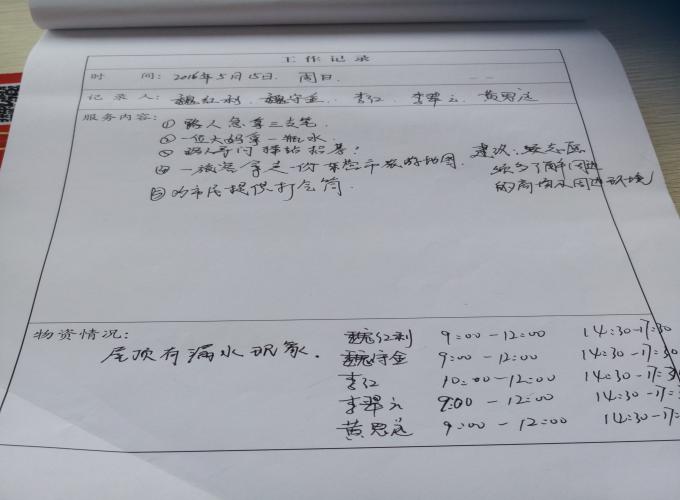 工作记录
时 间: 2016年5月15日. 周日.
记 录 人: 魏红利. 魏守金. 李红. 李翠云. 黄思
服务内容: ① 路人急拿三支笔
② 一位大妈拿一瓶水
③ 路人寻问
④ 一旅客拿走一份 旅游地图.
⑤ 为市民提供打气筒.
建议:
了解周边
的商场及周边环境
物资情况:
尾顶有漏水现象.
魏红利 9:00-12:00 14:30-17:30
魏守金 9:00-12:00 14:30-17:30
李红 10:00-12:00 14:30-17:3
李翠云 9:00-12:00 14:30-17:
黄思 9:00-12:00 14:30-17: